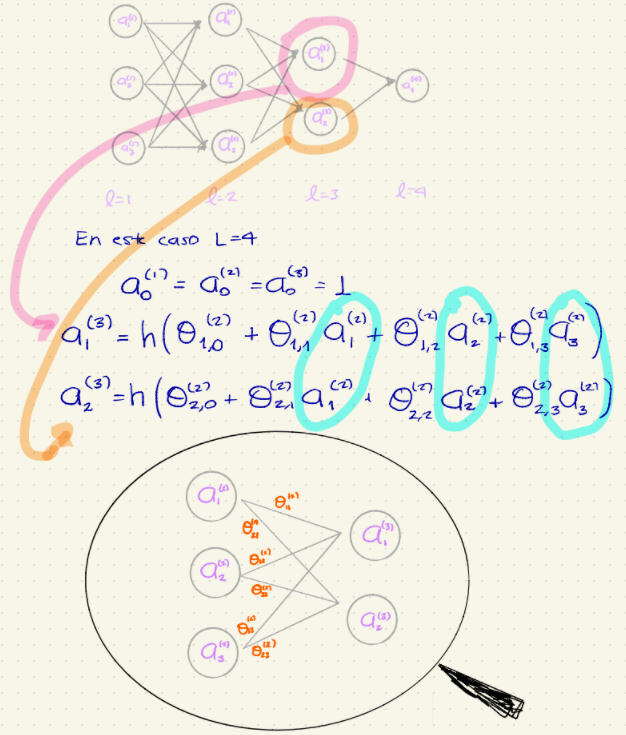 a₁⁽¹⁾ a₁⁽²⁾ a₁⁽³⁾
a₂⁽¹⁾ a₂⁽²⁾ a₂⁽³⁾ a₁⁽⁴⁾
a₃⁽¹⁾ a₃⁽²⁾
l=1 l=2 l=3 l=4
En este caso L=4
a₀⁽¹⁾ = a₀⁽²⁾ = a₀⁽³⁾ = 1
a₁⁽³⁾ = h(θ₁,₀⁽²⁾ + θ₁,₁⁽²⁾ a₁⁽²⁾ + θ₁,₂⁽²⁾ a₂⁽²⁾ + θ₁,₃⁽²⁾ a₃⁽²⁾)
a₂⁽³⁾ = h(θ₂,₀⁽²⁾ + θ₂,₁⁽²⁾ a₁⁽²⁾ + θ₂,₂⁽²⁾ a₂⁽²⁾ + θ₂,₃⁽²⁾ a₃⁽²⁾)
a₁⁽²⁾ θ₁₁⁽²⁾
θ₂₁⁽²⁾ a₁⁽³⁾
a₂⁽²⁾ θ₁₂⁽²⁾
θ₂₂⁽²⁾
θ₁₃⁽²⁾ a₂⁽³⁾
a₃⁽²⁾ θ₂₃⁽²⁾